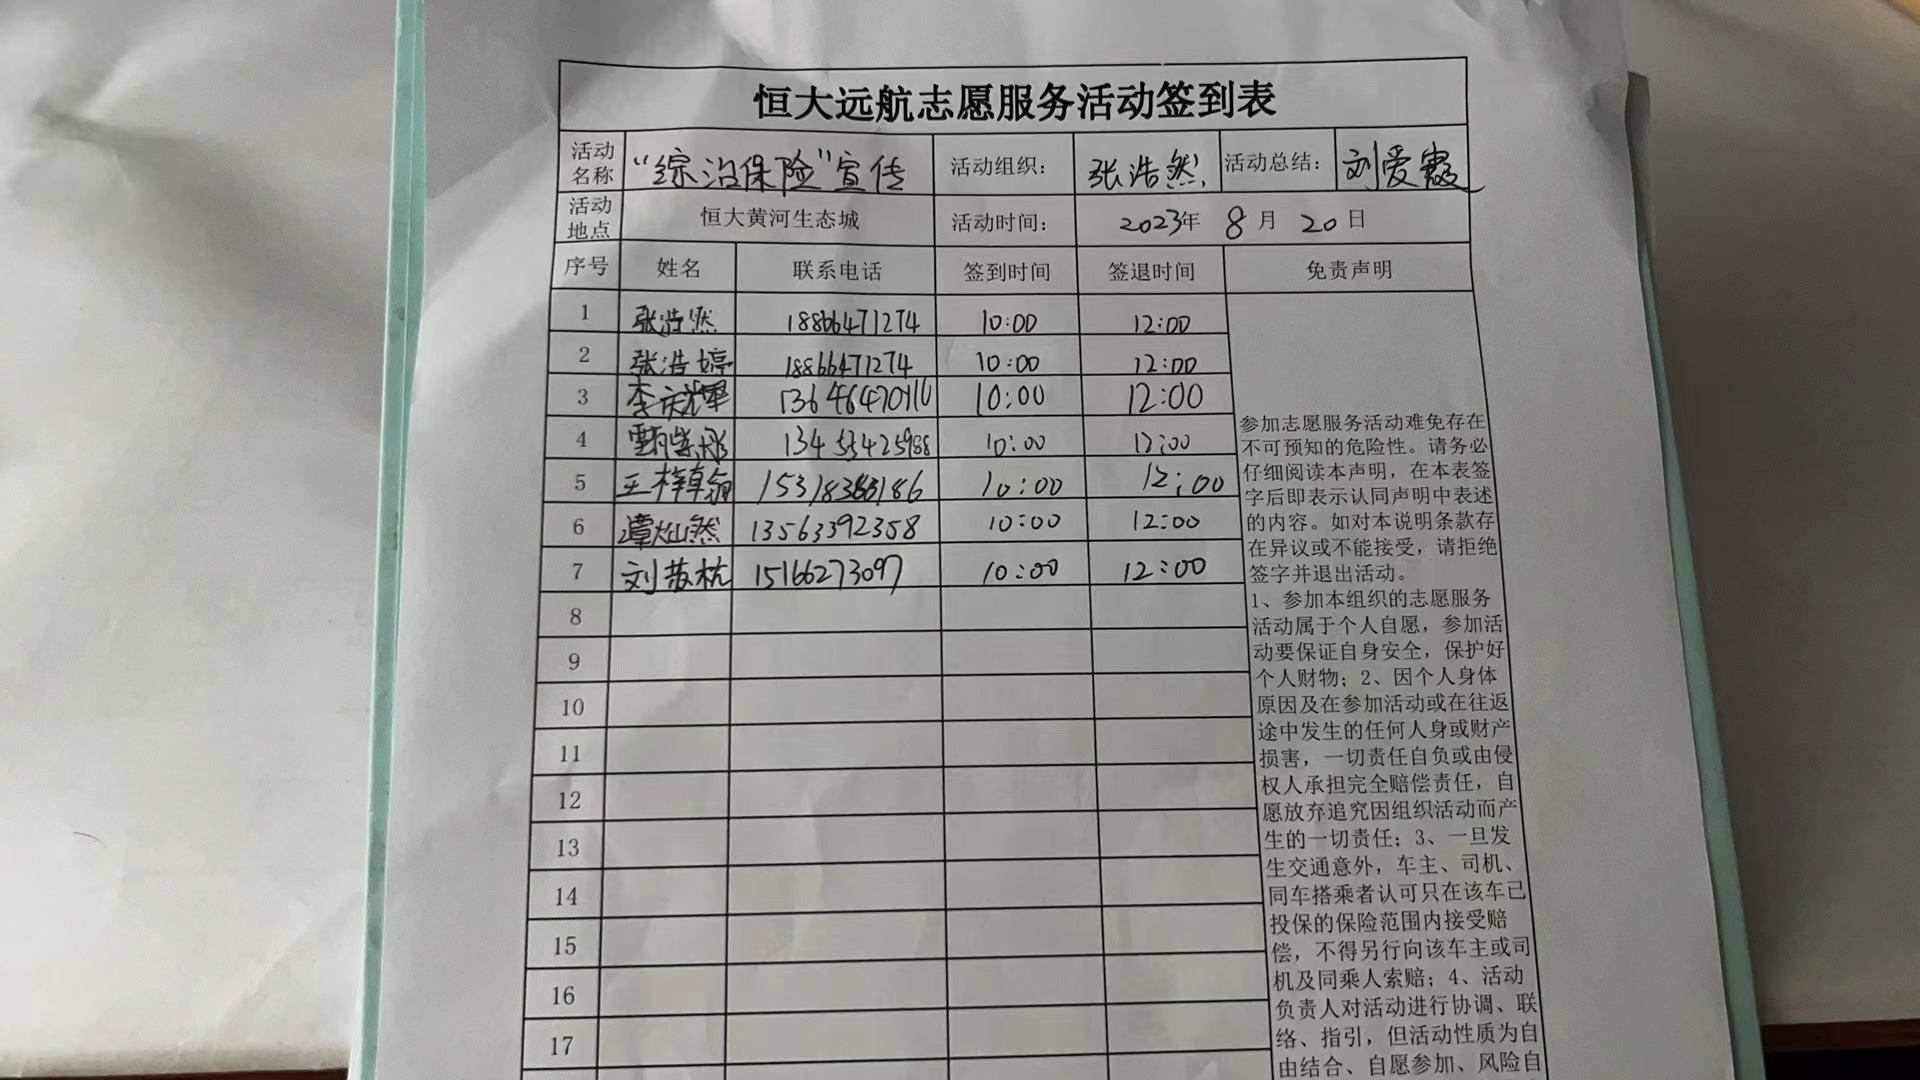 恒大远航志愿服务活动签到表
活动名称 “综治保险”宣传 活动组织: 张浩然 活动总结: 刘爱霞
活动地点 恒大黄河生态城 活动时间: 2023年 8月 20日
序号 姓名 联系电话 签到时间 签退时间 免责声明
1 张浩然 18866471274 10:00 12:00
2 张浩婷 18866471274 10:00 12:00
3 李庆耀 10:00 12:00
4 13453425988 10:00 12:00
5 王梓翰 10:00 12:00
6 谭灿然 13563392358 10:00 12:00
7 刘苏杭 15166273097 10:00 12:00
8
9
10
11
12
13
14
15
16
17
参加志愿服务活动难免存在
不可预知的危险性。请务必
仔细阅读本声明，在本表签
字后即表示认同声明中表述
的内容。如对本说明条款存
在异议或不能接受，请拒绝
签字并退出活动。
1、参加本组织的志愿服务
活动属于个人自愿，参加活
动要保证自身安全，保护好
个人财物；2、因个人身体
原因及在参加活动或在往返
途中发生的任何人身或财产
损害，一切责任自负或由侵
权人承担完全赔偿责任，自
愿放弃追究因组织活动而产
生的一切责任；3、一旦发
生交通意外，车主、司机、
同车搭乘者认可只在该车已
投保的保险范围内接受赔
偿，不得另行向该车主或司
机及同乘人索赔；4、活动
负责人对活动进行协调、联
络、指引，但活动性质为自
由结合、自愿参加、风险自